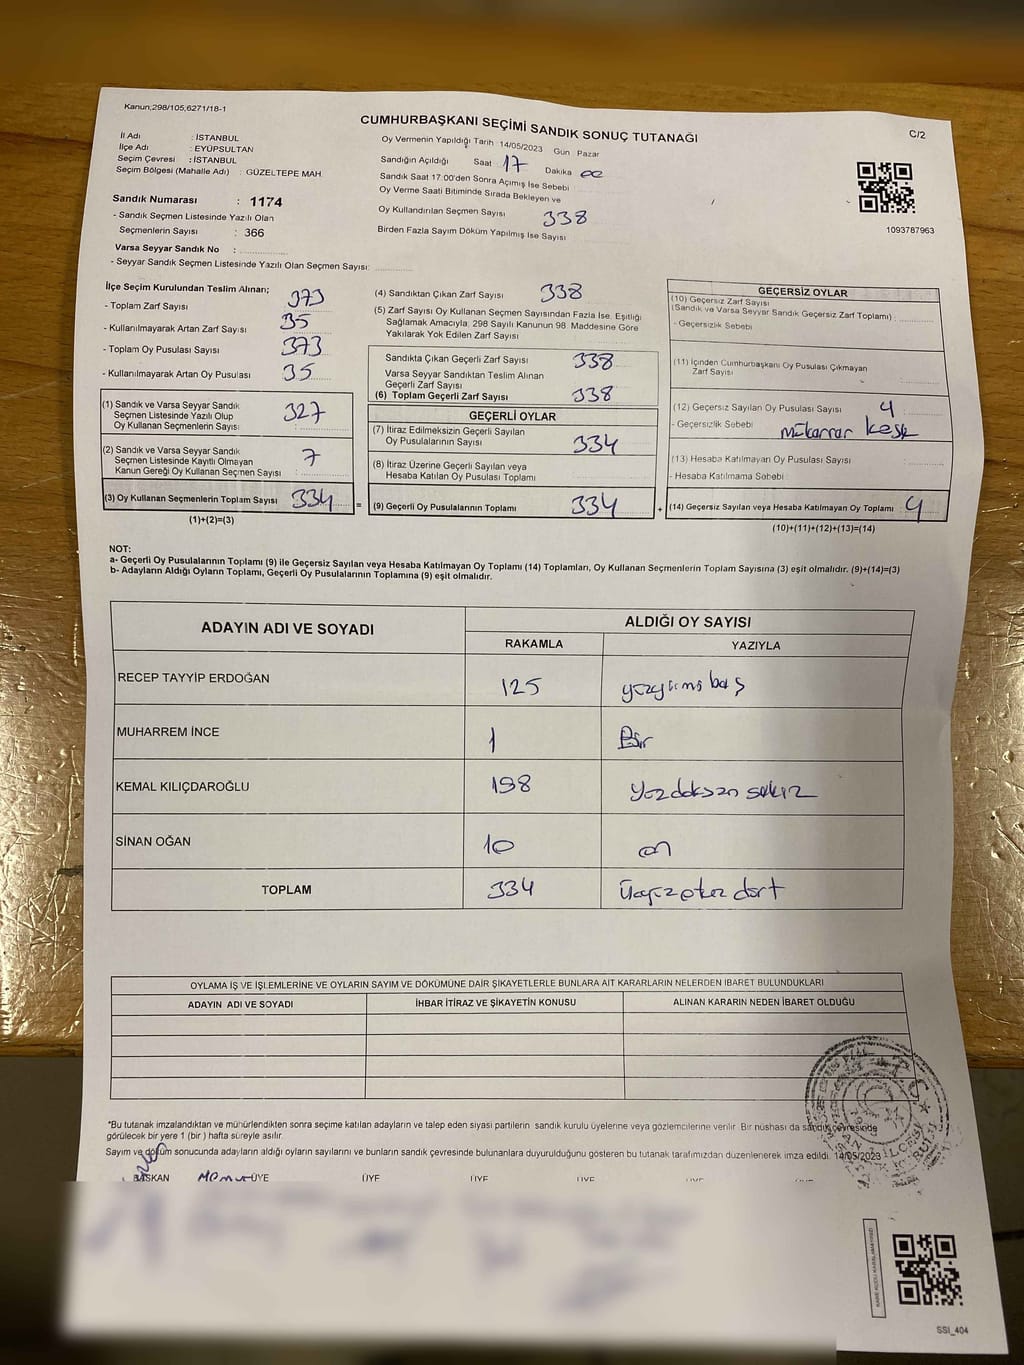 Kanun;298/105,6271/18-1
CUMHURBAŞKANI SEÇİMİ SANDIK SONUÇ TUTANAĞI
C/2
İl Adı : İSTANBUL
İlçe Adı : EYÜPSULTAN
Seçim Çevresi : İSTANBUL
Seçim Bölgesi (Mahalle Adı) : GÜZELTEPE MAH.
Sandık Numarası : 1174
- Sandık Seçmen Listesinde Yazılı Olan
Seçmenlerin Sayısı : 366
Varsa Seyyar Sandık No :
- Seyyar Sandık Seçmen Listesinde Yazılı Olan Seçmen Sayısı:
Oy Vermenin Yapıldığı Tarih 14/05/2023 Gün Pazar
Sandığın Açıldığı Saat 17 Dakika 00
Sandık Saat 17.00'den Sonra Açımış İse Sebebi
Oy Verme Saati Bitiminde Sırada Bekleyen ve
Oy Kullandırılan Seçmen Sayısı 338
Birden Fazla Sayım Döküm Yapılmış İse Sayısı
1093787963
İlçe Seçim Kurulundan Teslim Alınan;
- Toplam Zarf Sayısı 373
- Kullanılmayarak Artan Zarf Sayısı 35
- Toplam Oy Pusulası Sayısı 373
- Kullanılmayarak Artan Oy Pusulası 35
(1) Sandık ve Varsa Seyyar Sandık
Seçmen Listesinde Yazılı Olup
Oy Kullanan Seçmenlerin Sayısı : 327
(2) Sandık ve Varsa Seyyar Sandık
Seçmen Listesinde Kayıtlı Olmayan
Kanun Gereği Oy Kullanan Seçmen Sayısı : 7
(3) Oy Kullanan Seçmenlerin Toplam Sayısı 334 =
(1)+(2)=(3)
(4) Sandıktan Çıkan Zarf Sayısı 338
(5) Zarf Sayısı Oy Kullanan Seçmen Sayısından Fazla İse, Eşitliği
Sağlamak Amacıyla; 298 Sayılı Kanunun 98. Maddesine Göre
Yakılarak Yok Edilen Zarf Sayısı
Sandıkta Çıkan Geçerli Zarf Sayısı 338
Varsa Seyyar Sandıktan Teslim Alınan
Geçerli Zarf Sayısı
(6) Toplam Geçerli Zarf Sayısı 338
GEÇERLİ OYLAR
(7) İtiraz Edilmeksizin Geçerli Sayılan
Oy Pusulalarının Sayısı 334
(8) İtiraz Üzerine Geçerli Sayılan veya
Hesaba Katılan Oy Pusulası Toplamı
(9) Geçerli Oy Pusulalarının Toplamı 334 +
GEÇERSİZ OYLAR
(10) Geçersiz Zarf Sayısı
(Sandık ve Varsa Seyyar Sandık Geçersiz Zarf Toplamı) :
- Geçersizlik Sebebi
(11) İçinden Cumhurbaşkanı Oy Pusulası Çıkmayan
Zarf Sayısı
(12) Geçersiz Sayılan Oy Pusulası Sayısı 4
- Geçersizlik Sebebi
(13) Hesaba Katılmayan Oy Pusulası Sayısı
- Hesaba Katılmama Sebebi
(14) Geçersiz Sayılan veya Hesaba Katılmayan Oy Toplamı : 4
(10)+(11)+(12)+(13)=(14)
NOT:
a- Geçerli Oy Pusulalarının Toplamı (9) ile Geçersiz Sayılan veya Hesaba Katılmayan Oy Toplamı (14) Toplamları, Oy Kullanan Seçmenlerin Toplam Sayısına (3) eşit olmalıdır. (9)+(14)=(3)
b- Adayların Aldığı Oyların Toplamı, Geçerli Oy Pusulalarının Toplamına (9) eşit olmalıdır.
ADAYIN ADI VE SOYADI
ALDIĞI OY SAYISI
RAKAMLA YAZIYLA
RECEP TAYYİP ERDOĞAN 125 yüzyirmi beş
MUHARREM İNCE 1 Bir
KEMAL KILIÇDAROĞLU 198 yüzdoksan sekiz
SİNAN OĞAN 10 on
TOPLAM 334 Üçyüzotuz dört
OYLAMA İŞ VE İŞLEMLERİNE VE OYLARIN SAYIM VE DÖKÜMÜNE DAİR ŞİKAYETLERLE BUNLARA AİT KARARLARIN NELERDEN İBARET BULUNDUKLARI
ADAYIN ADI VE SOYADI İHBAR İTİRAZ VE ŞİKAYETİN KONUSU ALINAN KARARIN NEDEN İBARET OLDUĞU
*Bu tutanak imzalandıktan ve mühürlendikten sonra seçime katılan adayların ve talep eden siyasi partilerin sandık kurulu üyelerine veya gözlemcilerine verilir. Bir nüshası da sandık çevresinde
görülecek bir yere 1 (bir ) hafta süreyle asılır.
Sayım ve döküm sonucunda adayların aldığı oyların sayılarını ve bunların sandık çevresinde bulunanlara duyurulduğunu gösteren bu tutanak tarafımızdan düzenlenerek imza edildi. 14/05/2023
BAŞKAN ÜYE ÜYE ÜYE ÜYE
SSİ_404